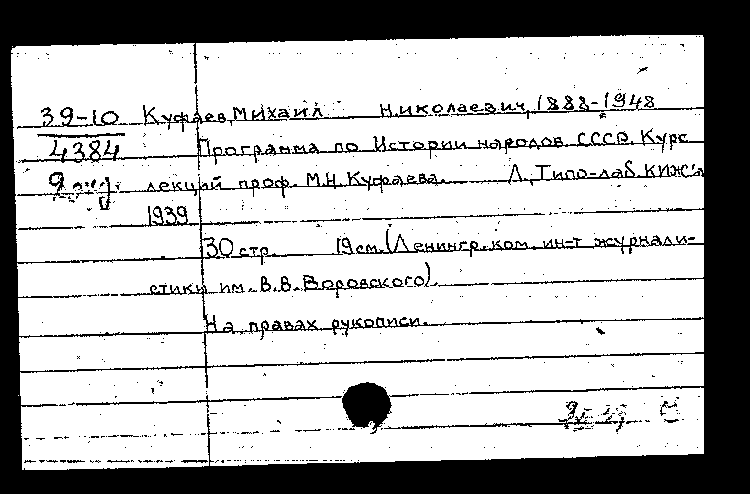 39-10 Куфаев, Михаил Николаевич, 1888-1948
4384 Программа по Истории народов СССР. Курс
лекций проф. М.Н. Куфаева. Л., Типо-лаб. КИЖ'а
1939
30 стр. 19 см. (Ленингр. ком. ин-т журнали-
стики им. В.В. Воровского).
На правах рукописи.